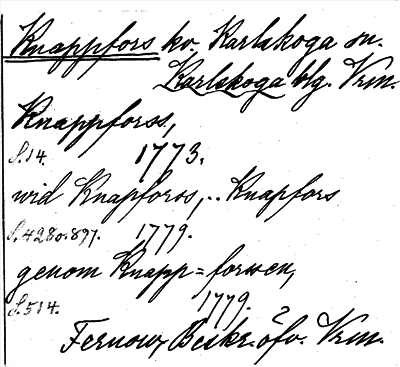 Knappfors kv. Karlskoga sn.
Karlskoga blg. Vrm.
Knappforss,
S. 14. 1773.
wid Knapforos,.. Knapfors
S. 428 o. 897. 1779.
genom Knapp=forsen,
S. 514. 1779.
Fernow, Beskr. öfv. Vrm.
2